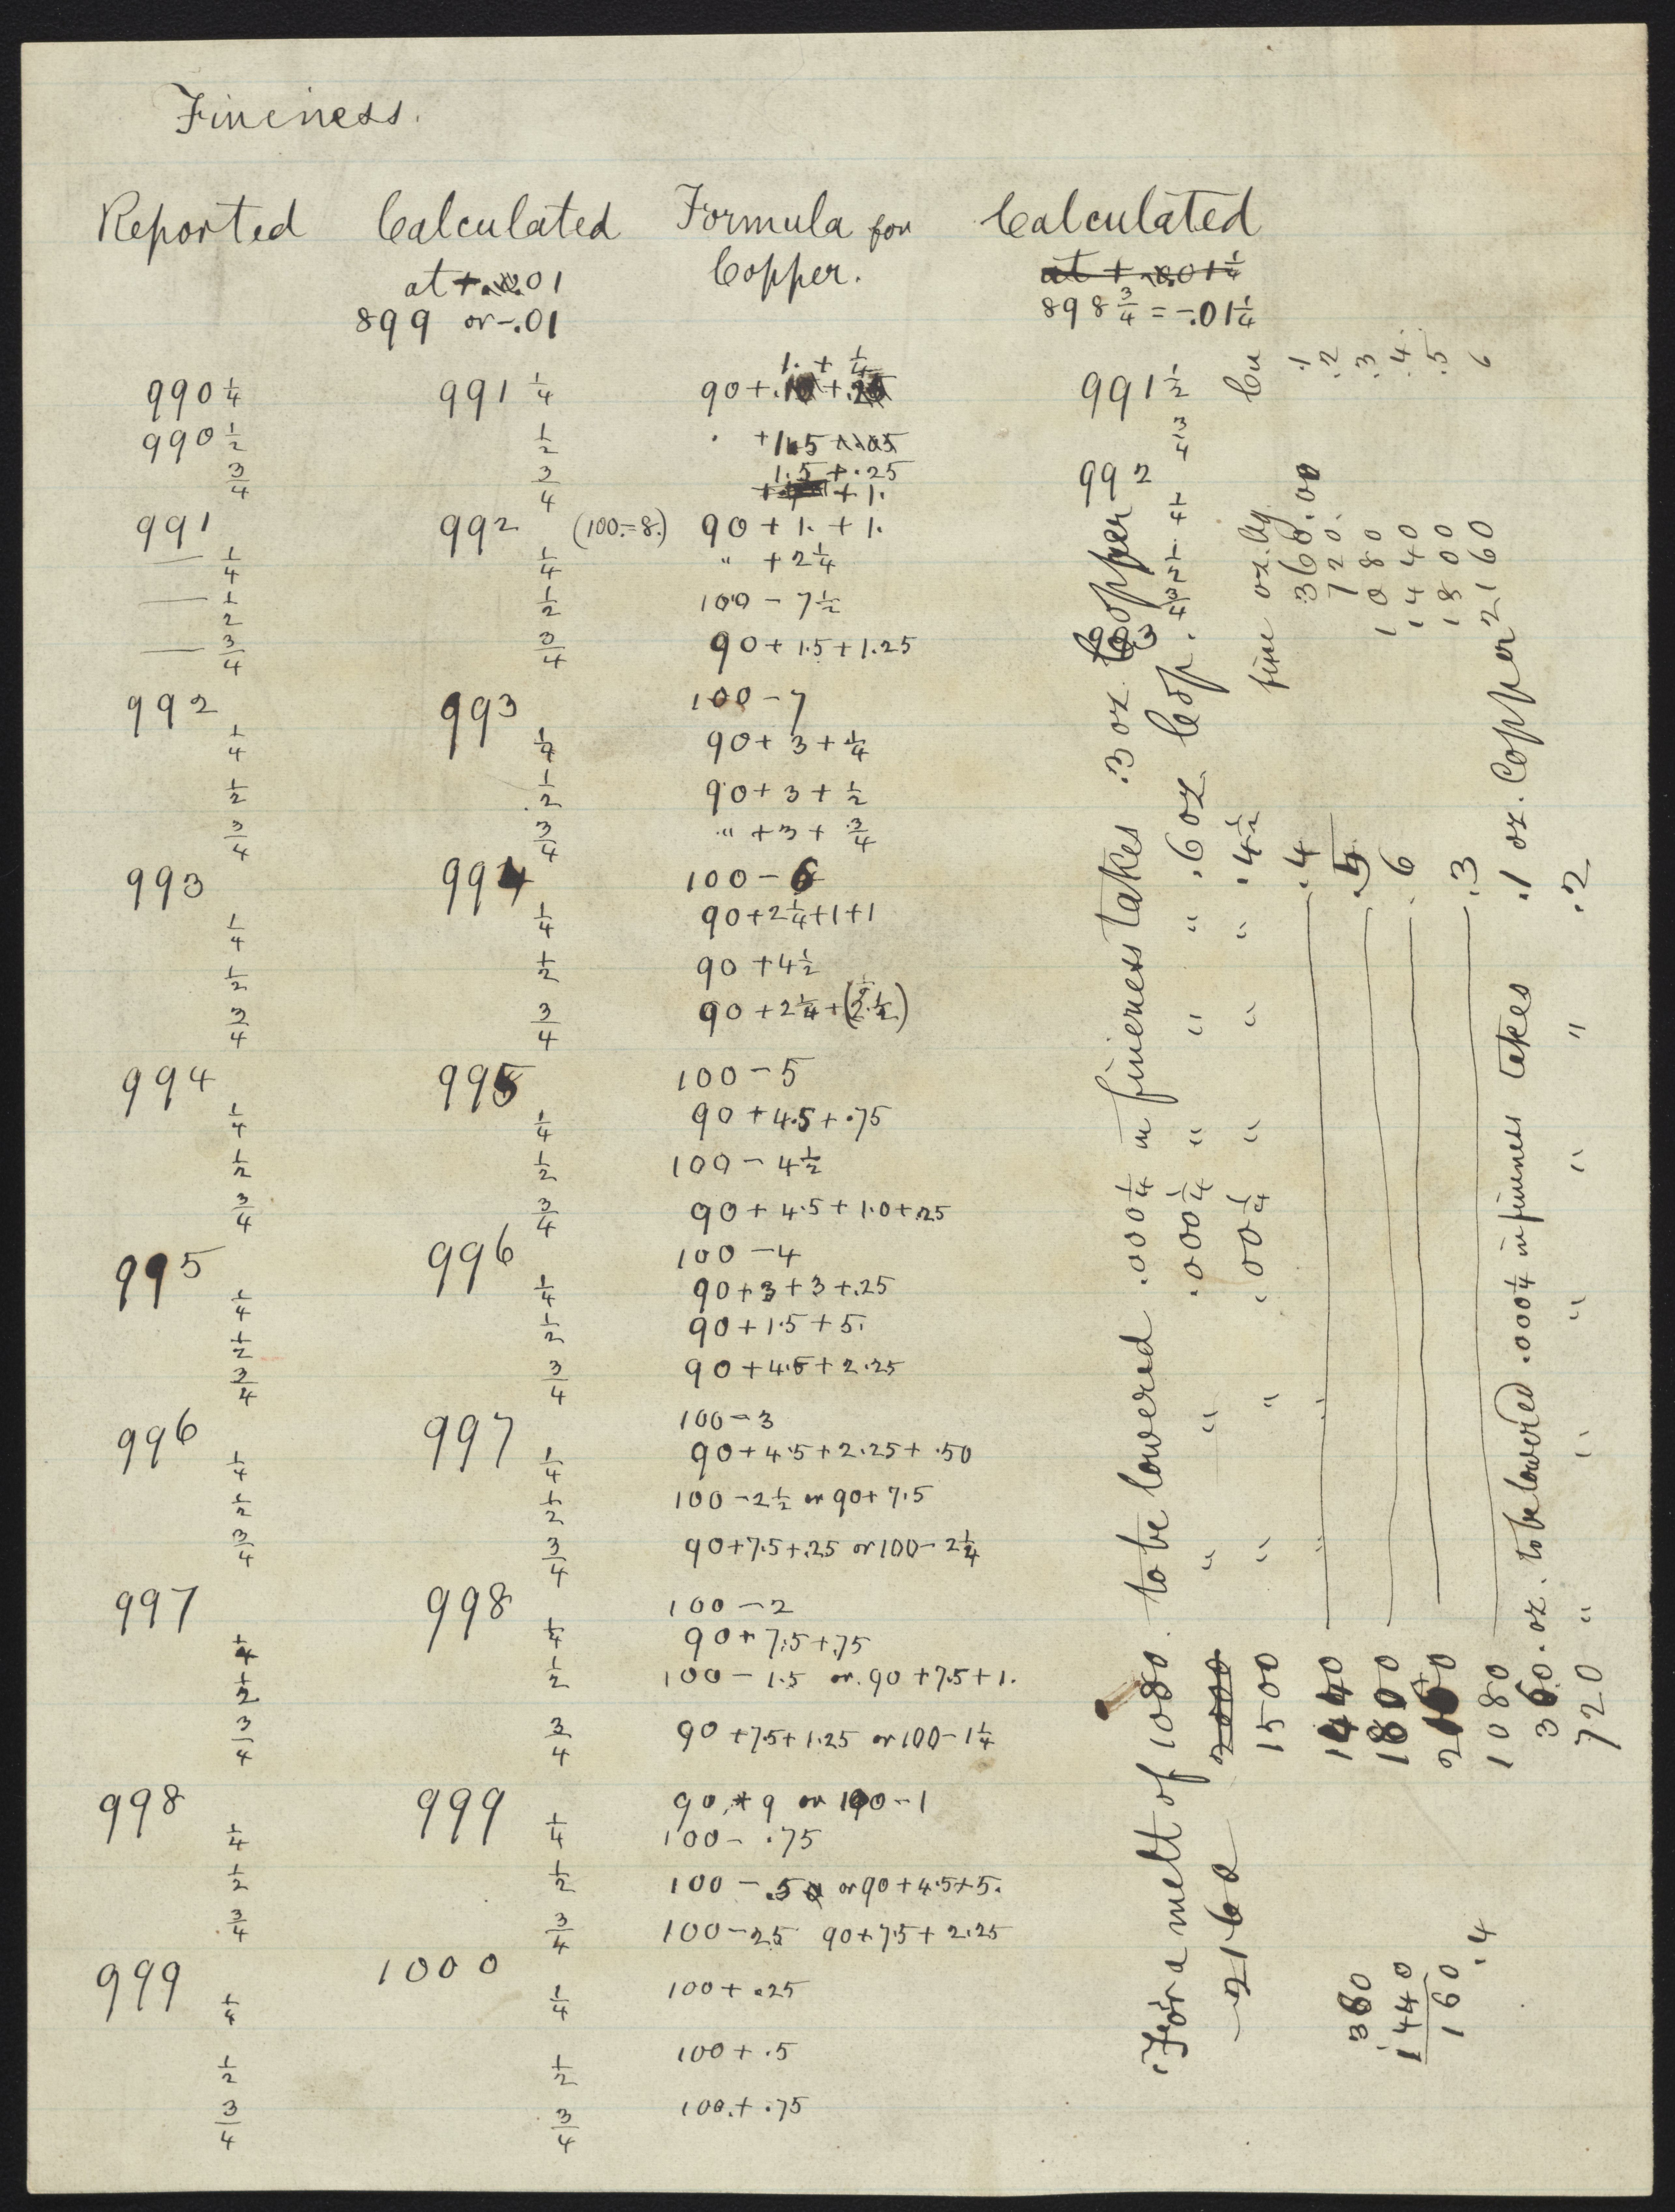 Fineness.
Reported Calculated Formula for Calculated
at +. 01 Copper. at + .01 1/4
899 or -.01 898 3/4 = -.01 1/4
1. + 1/4
990 1/4 991 1/4 90 + 991 1/2
990 1/2 1/2 + 1.5 3/4
3/4 3/4 1.5 + .25 992
+ 1.
991 992 (100.=8.) 90 + 1. + 1. 1/4
1/4 1/4 " + 2 1/4 1/2
1/2 1/2 100 - 7 1/2 3/4
3/4 3/4 90 + 1.5 + 1.25 3
992 993 100 - 7
1/4 1/4 90 + 3 + 1/4
1/2 1/2 90 + 3 + 1/2
3/4 3/4 " + 3 + 3/4
993 994 100 - 6
1/4 1/4 90 + 2 1/4 + 1 + 1
1/2 1/2 90 + 4 1/2
3/4 3/4 90 + 2 1/4 + (2 1/2)
994 995 100 - 5
1/4 1/4 90 + 4.5 + .75
1/2 1/2 100 - 4 1/2
3/4 3/4 90 + 4.5 + 1.0 + .25
995 996 100 - 4
1/4 1/4 90 + 3 + 3 + .25
1/2 1/2 90 + 1.5 + 5.
3/4 3/4 90 + 4.5 + 2.25
996 997 100 - 3
1/4 1/4 90 + 4.5 + 2.25 + .50
1/2 1/2 100 - 2 1/2 or 90 + 7.5
3/4 3/4 90 + 7.5 + .25 or 100 - 2 1/4
997 998 100 - 2
1/4 1/4 90 + 7.5 + .75
1/2 1/2 100 - 1.5 or. 90 + 7.5 + 1.
3/4 3/4 90 + 7.5 + 1.25 or 100 - 1 1/4
998 999 90 + 9 or 100 - 1
1/4 1/4 100 - .75
1/2 1/2 100 - .50 or 90 + 4.5 + 5.
3/4 3/4 100 - 25 90 + 7.5 + 2.25
999 1000
1/4 1/4 100 + .25
1/2 1/2 100 + .5
3/4 3/4 100. + .75
For a melt of 1080 to be lowered .000 1/4 in fineness takes .3 oz. Copper
2160 2000 " " .000 1/4 " " " .6 oz Cop.
1500 " " .00 1/4 " " " .4 1/2
1440 " " .4
1800 .5
2160 .6
1080 .3
360. oz. to be lowered .000 1/4 in fineness takes .1 oz. Copper
720 " " " " " .2
fine oz. Ag. Cu
360.00 .1
720. .2
1080 .3
1440 .4
1800 .5
2160 6
360
1440
160 .4